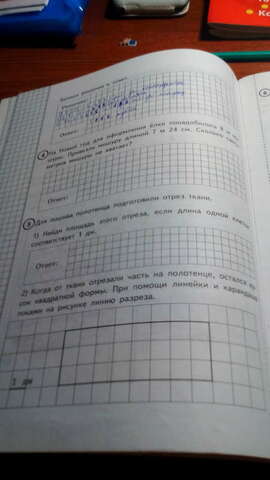 Запиши решение и ответ.
Решение:
Ответ:
4 На Новый год для оформления ёлки понадобилось 9 м ми-
шуры. Привезли мишуру длиной 7 м 24 см. Сколько санти-
метров мишуры не хватает?
Ответ:
5 Для пошива полотенца подготовили отрез ткани.
1) Найди площадь этого отреза, если длина одной клетки
соответствует 1 дм.
Ответ:
2) Когда от ткани отрезали часть на полотенце, остался ку-
сок квадратной формы. При помощи линейки и карандаша
покажи на рисунке линию разреза.
1 дм